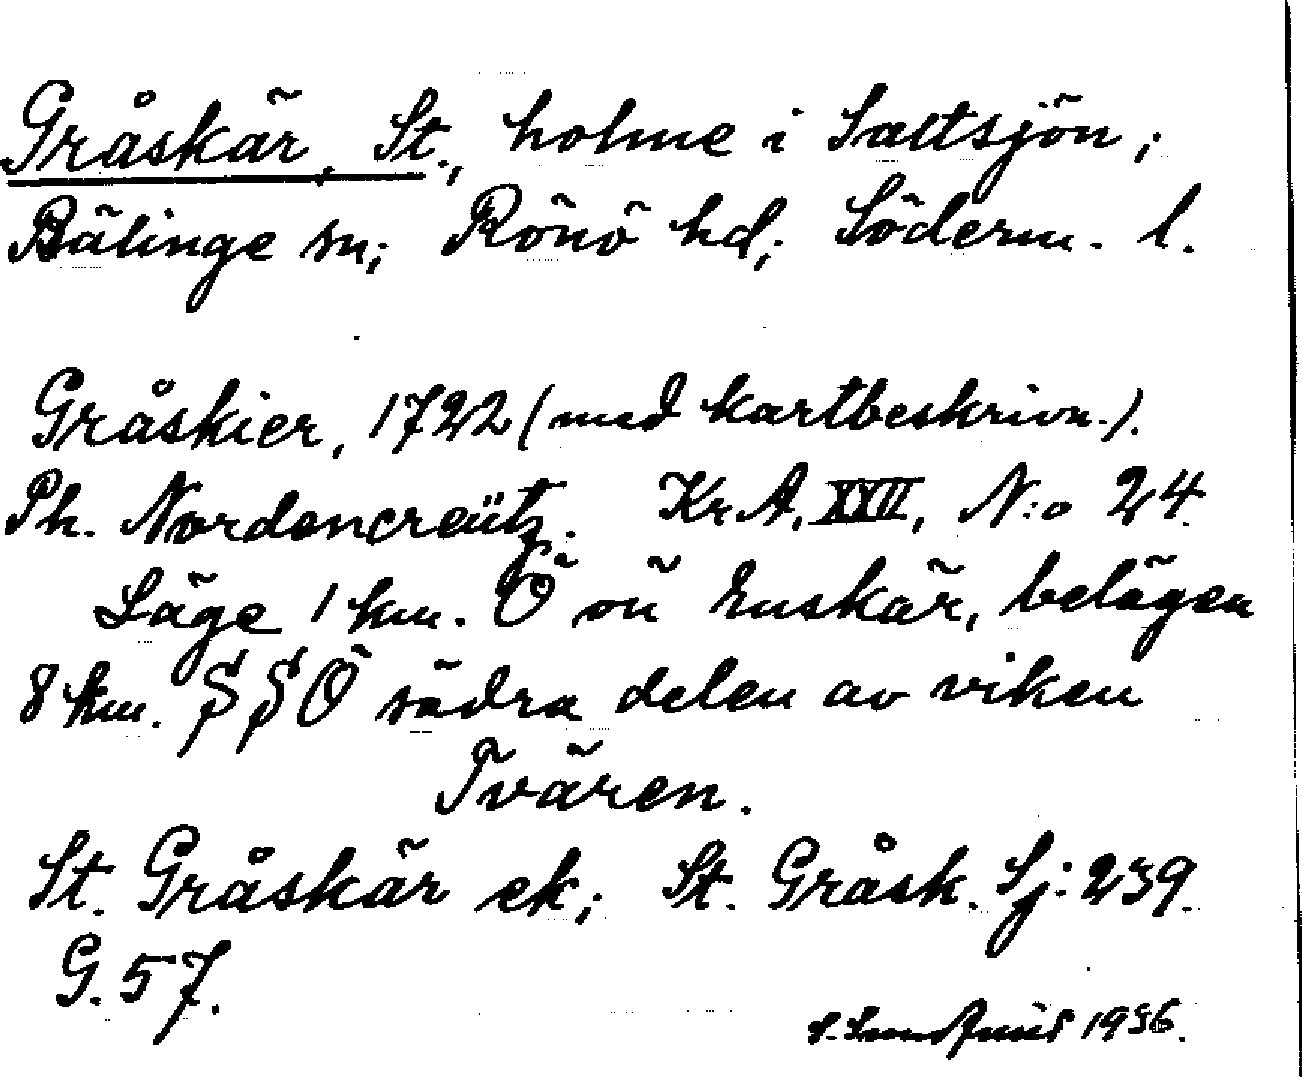 Gråskär, St., holme i Saltsjön;
Bälinge sn; Rönö hd; Söderm. l.
Gråskier, 1722 (med kartbeskrivn.).
Ph. Nordencreütz. Kr.A. XXII, N:o 24.
Läge 1 km. Ö om Enskär, belägen
8 km. SSÖ södra delen av viken
Tvären.
St. Gråskär ek; St. Gråsk. Sj: 239.
G. 57.
1936.